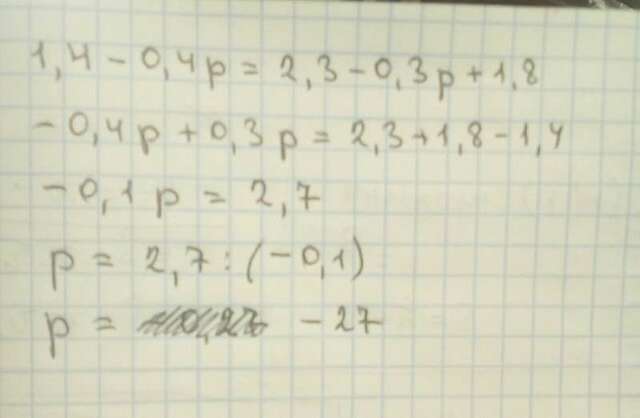 1,4 - 0,4p = 2,3 - 0,3p + 1,8
- 0,4p + 0,3p = 2,3 + 1,8 - 1,4
- 0,1p = 2,7
p = 2,7 : (-0,1)
p = - 27